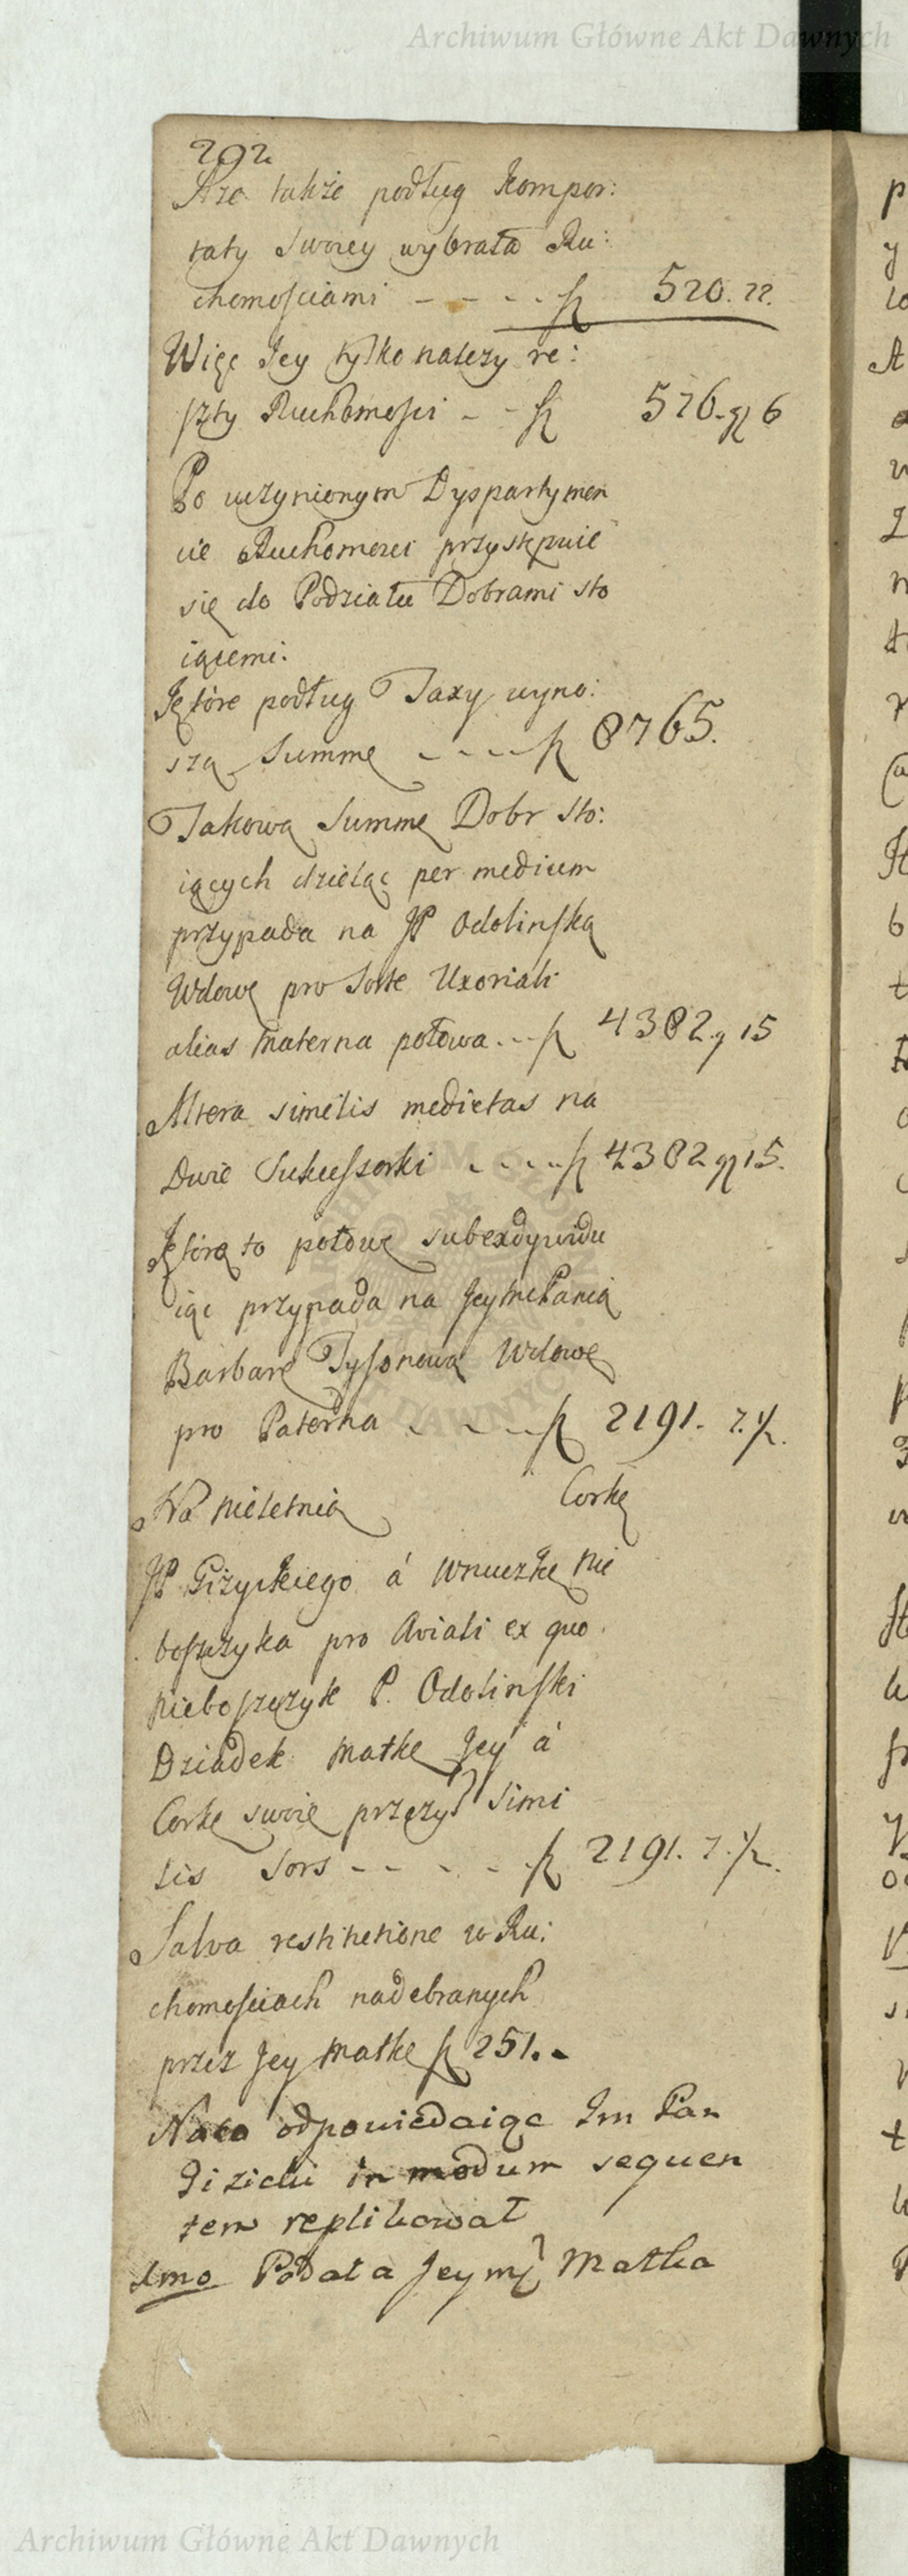 Archiwum Główne Akt Dawnych
202
Aże także podług Kompor:
taty Swoiey wybrała Ru:
chomościami - - - - fl 520. 22.
Więc Jey tylko należy re:
szty Ruchomości - - fl 526. gr 6
Po uczynionym Dyspartymen
cie Ruchomosci przystępuie
się do Podziału Dobrami sto
iącemi.
Które podług Taxy wyno:
szą Summę - - - - fl 8765.
Takową Summę Dobr sto:
iących dzieląc per medium
przypada na JP Odolinską
Wdowę pro Sorte Uxoriali
alias Materna połowa - - fl 4382 g 15
Altera similis medietas na
Dwie Sukcessorki - - - - fl 4382 gr 15.
Którą to połowę subexdywidu
iąc przypada na JeymcPanią
Barbarę Tysonową Wdowę
pro Paterna - - - - fl 2191. 7. ½.
Na nieletnią Corkę
JP Giżyckiego á Wnuczkę Nie
boszczyka pro Aviali ex quo
Nieboszczyk P. Odolinski
Dziadek Matkę Jey á
Corkę swoię przeżył simi
lis Sors - - - - - fl 2191. 7. ½.
Salva restitutione w Ru:
chomościach nadebranych
przez Jey Matkę fl 251. -
Nato odpowiedaiąc Im Pan
Gizicki in modum sequen
tem replikował
1mo Podała Jeymć Matka
Archiwum Główne Akt Dawnych